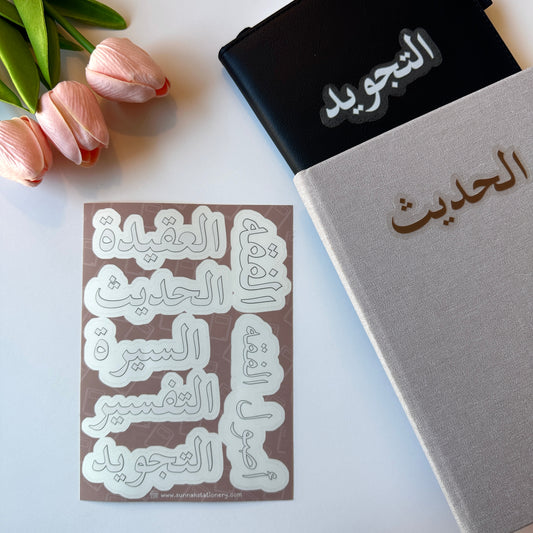 التجويد
الحديث
العقيدة
الفقه
الحديث
السيرة
أصول الفقه
التفسير
التجويد
www.sunnahstationery.com